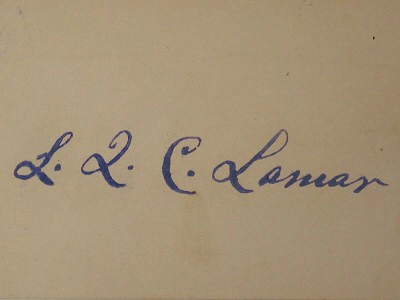 L. Q. C. Lamar